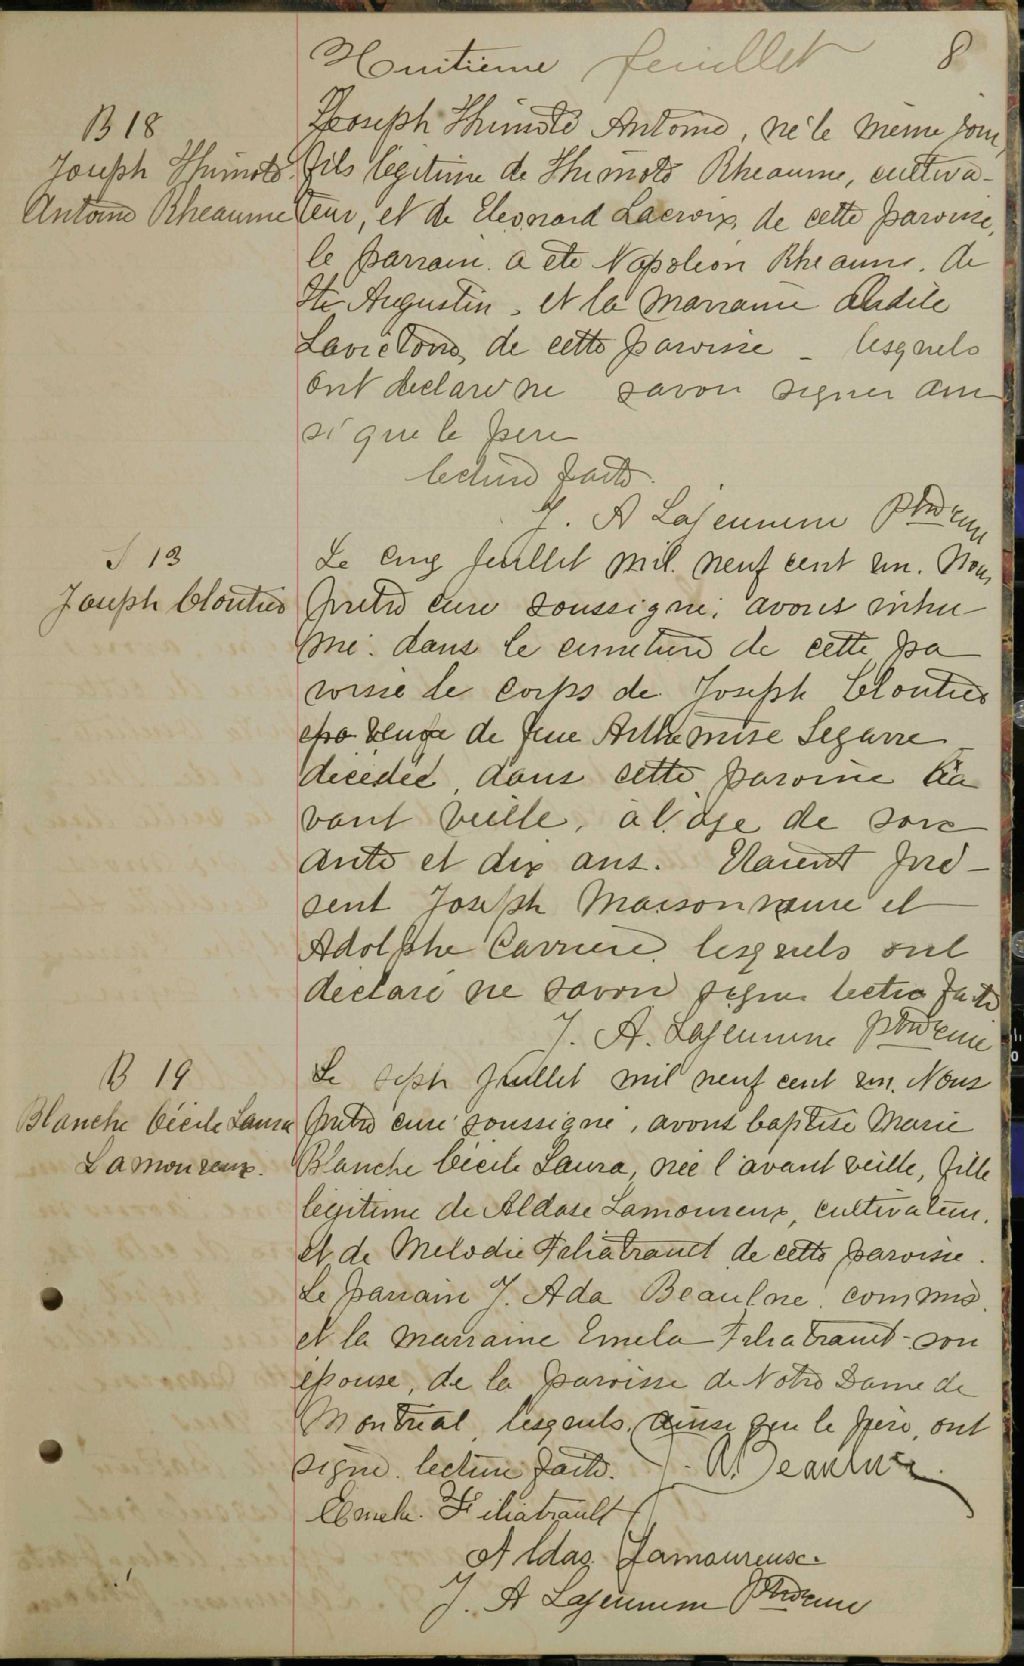 Huitieme feuillet 8
B 18
Joseph Thimoté
Antoine Rheaume
Joseph Thimoté Antoine, né le même jour,
fils légitime de Thimoté Rheaume, cultiva-
teur, et de Eleonard Lacroix, de cette paroisse,
le parrain a ete Napoléon Rheaume, de
Ste Augustin, et la marraine Adèle
de cette paroisse - lesquels
ont declare ne savoir signer ain
si que le pere
lecture faite.
J. A Lajeunesse Ptre cure
S 13
Joseph Cloutier
Le cinq Juillet mil neuf cent un. Nous
pretre cure soussigné, avons inhu-
mé dans le cimetiere de cette pa
roisse le corps de Joseph Cloutier
epo veuf de feue Arthemise Legarre
décédé dans cette paroisse l'a
vant veille, à l'age de soix
ante et dix ans. Etaient pré-
sent Joseph Maisonneuve et
Adolphe Carriere lesquels ont
declaré ne savoir signer lectre faite
J. A. Lajeunesse Ptre cure
B 19
Blanche Cécile Laura
Lamoureux.
Le sept Juillet mil neuf cent un. Nous
pretre curé soussigné, avons baptisé Marie
Blanche Cécile Laura, née l'avant veille, fille
légitime de Aldase Lamoureux, cultivateur,
et de Melodie Filiatrault de cette paroisse.
Le parrain J. Ada Beaulne commis,
et la marraine Emela Filiatrault son
épouse, de la paroisse de Notre Dame de
Montréal, lesquels, ainsi que le père, ont
signé. lecture faite. J. A. Beaulne
Emela Filiatrault
Aldas Lamoureux.
J. A Lajeunesse Ptre cure